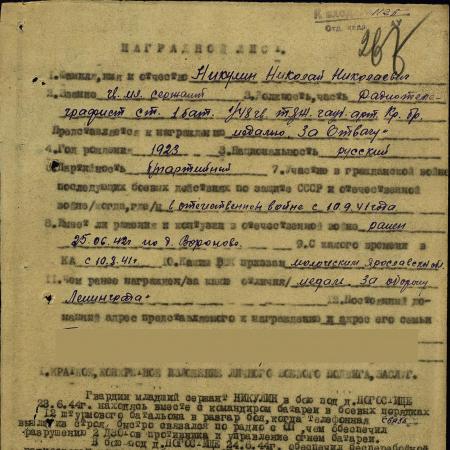 №26
Отд. кадр.
26
НАГРАДНОЙ ЛИСТ.
1.Фамилия, имя и отчество Никулин Николай Николаевич
2.Звание гв. мл. сержант 3.Должность, часть Радиотеле-
графист ст. 1 бат. гв. тяж. гауб. арт. Кр. бр.
Представляется к награждению медалью "За Отвагу"
4.Год рождения 1923 5.Национальность русский
6.Партийность б/партийный 7.Участие в гражданской войне
последующих боевых действиях по защите СССР и отечественной
войне/когда, где/ в отечественной войне с 10.9.41 года
8.Имеет ли ранения и контузии в отечественной войне ранен
25.06.42г под д. Вороново. 9.С какого времени в
КА с 10.8.41г 10.Каким РВК призван Молотовским Ярославской обл.
11.Чем ранее награжден/за какие отличия/ медаль "За оборону
Ленинграда" 12.Постоянный до-
машний адрес представляемого к награждению и адрес его семьи
I.КРАТКОЕ, КОНКРЕТНОЕ ИЗЛОЖЕНИЕ ЛИЧНОГО БОЕВОГО ПОДВИГА, ЗАСЛУГ.
Гвардии младший сержант НИКУЛИН в бою под д.ПОГОСТИЩЕ
23.6.44г. находясь вместе с командиром батареи в боевых порядках
12 штурмового батальона в разгар боя, когда телефонная связь
вышла из строя, быстро связался по радио с ОП, чем обеспечил
разрушению 2 ДЗОТов противника и управление огнем батареи.
В бою под д. ПОГОСТИЩЕ 24.6.44г. обеспечил бесперебойной